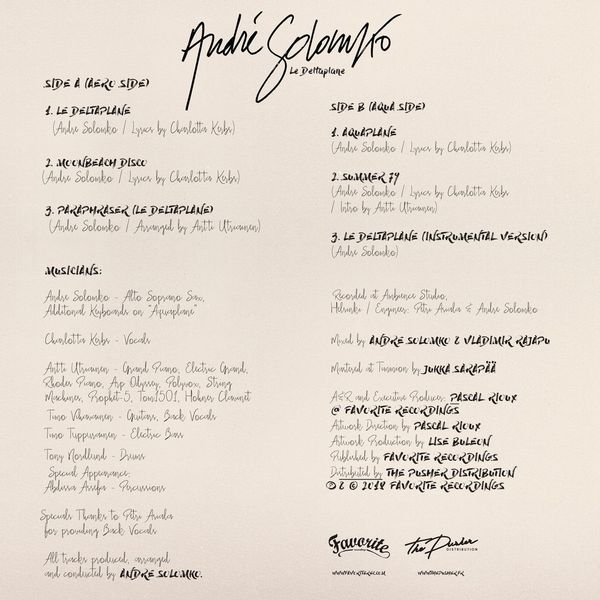 André Solomko
Le Deltaplane
SIDE A (AERO SIDE)
1. LE DELTAPLANE
(Andre Solomko / Lyrics by Charlotta Kerbs)
2. MOONBEACH DISCO
(Andre Solomko / Lyrics by Charlotta Kerbs)
3. PARAPHRASER (LE DELTAPLANE)
(Andre Solomko / Arranged by Antti Utriainen)
MUSICIANS:
Andre Solomko - Alto Soprano Sax,
Additonal Keyboards on "Aquaplane"
Charlotta Kerbs - Vocals
Antti Utriainen - Grand Piano, Electric Grand,
Rhodes Piano, Arp Odyssey, Polivox, String
Machines, Prophet-5, Tom1501, Hohner Clavinet
Timo - Guitars, Back Vocals
Timo Tuppurainen - Electric Bass
Tony Nordlund - Drums
Special Appearance:
Abdissa Assefa - Percussions
Specials Thanks to Petri
for providing Back Vocals
All tracks produced, arranged
and conducted by ANDRE SOLOMKO.
SIDE B (AQUA SIDE)
1. AQUAPLANE
(Andre Solomko / Lyrics by Charlotta Kerbs)
2. SUMMER 79
(Andre Solomko / Lyrics by Charlotta Kerbs
/ Intro by Antti Utriainen)
3. LE DELTAPLANE (INSTRUMENTAL VERSION)
(Andre Solomko)
Recorded at Ambience Studio,
Helsinki / Engineers: Petri & Andre Solomko
Mixed by ANDRE SOLOMKO & VLADIMIR RAJAPU
Mastered at Timmion by JUKKA SARAPÄÄ
A&R and Executive Producer: PASCAL RIOUX
@ FAVORITE RECORDINGS
Artwork Direction by PASCAL RIOUX
Artwork Production by LISE BULEON
Published by FAVORITE RECORDINGS
Distributed by THE PUSHER DISTRIBUTION
℗ & © 2018 FAVORITE RECORDINGS
Favorite
The Pusher
DISTRIBUTION
WWW.FAVORITEREC.COM
WWW.THEPUSHER.FR